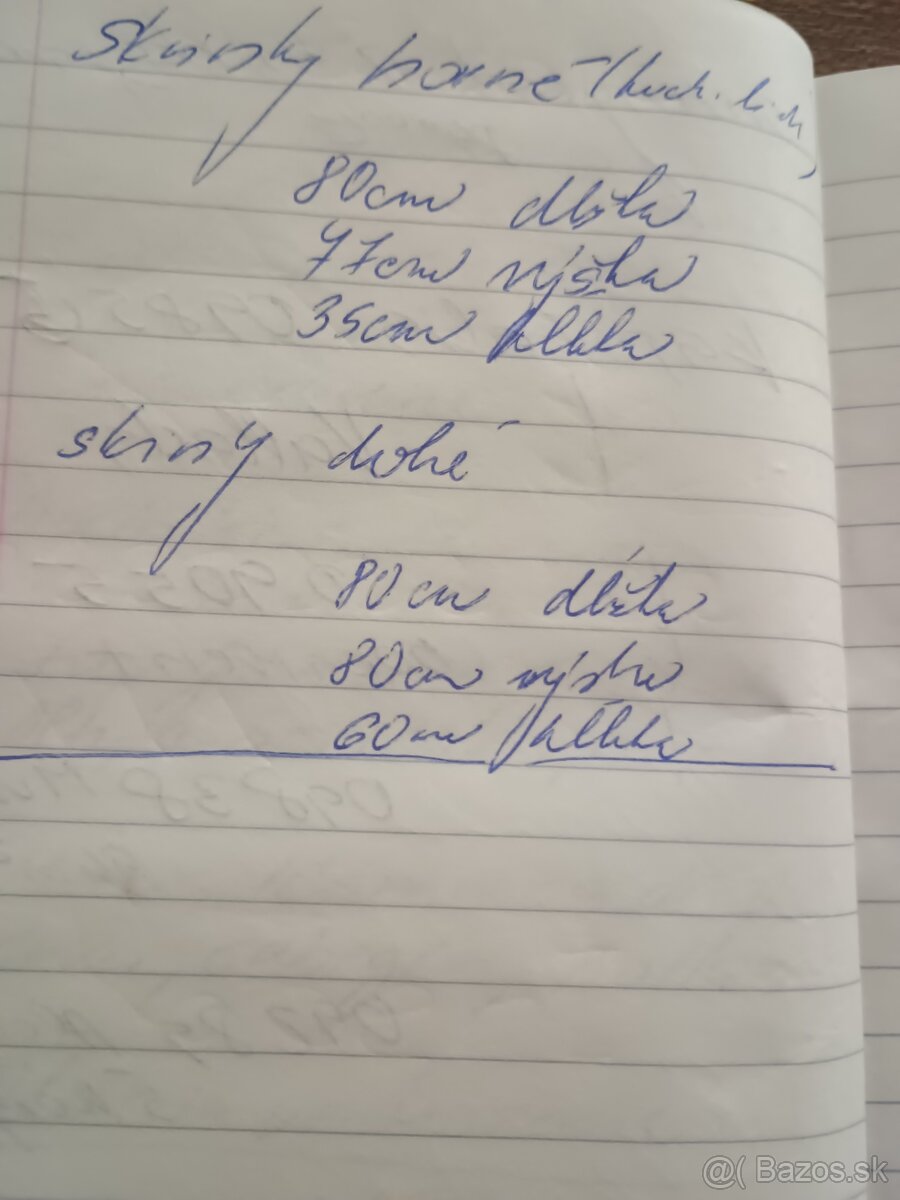 Skrinky horné (kuch.
80cm dlžka
77cm výška
35cm hĺbka
skriny dolné
80cm dĺžka
80cm výška
60cm hĺbka
@( Bazos.sk